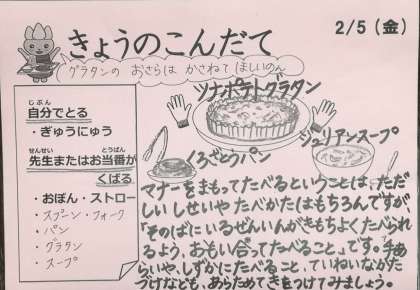 きょうのこんだて
2/5（金）
グラタンの おさらは かさねて ほしいのん
じぶん
自分でとる
・ぎゅうにゅう
せんせい とうばん
先生またはお当番が
くばる
・おぼん・ストロー
・スプーン・フォーク
・パン
・グラタン
・スープ
ツナポテトグラタン
くろざとうパン
ジュリアンスープ
マナーをまもってたべるということは、ただ
しい しせいや たべかたはもちろんですが
「そのばにいるぜんいんがきもちよくたべられ
るよう、おもい合ってたべること」です。手あ
らいや、しずかにたべること、ていねいなかた
づけなども、あらためてきをつけてみましょう。